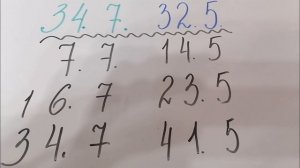 34. 7. 32. 5.
7. 7. 14. 5
16. 7 23. 5
34. 7 41. 5